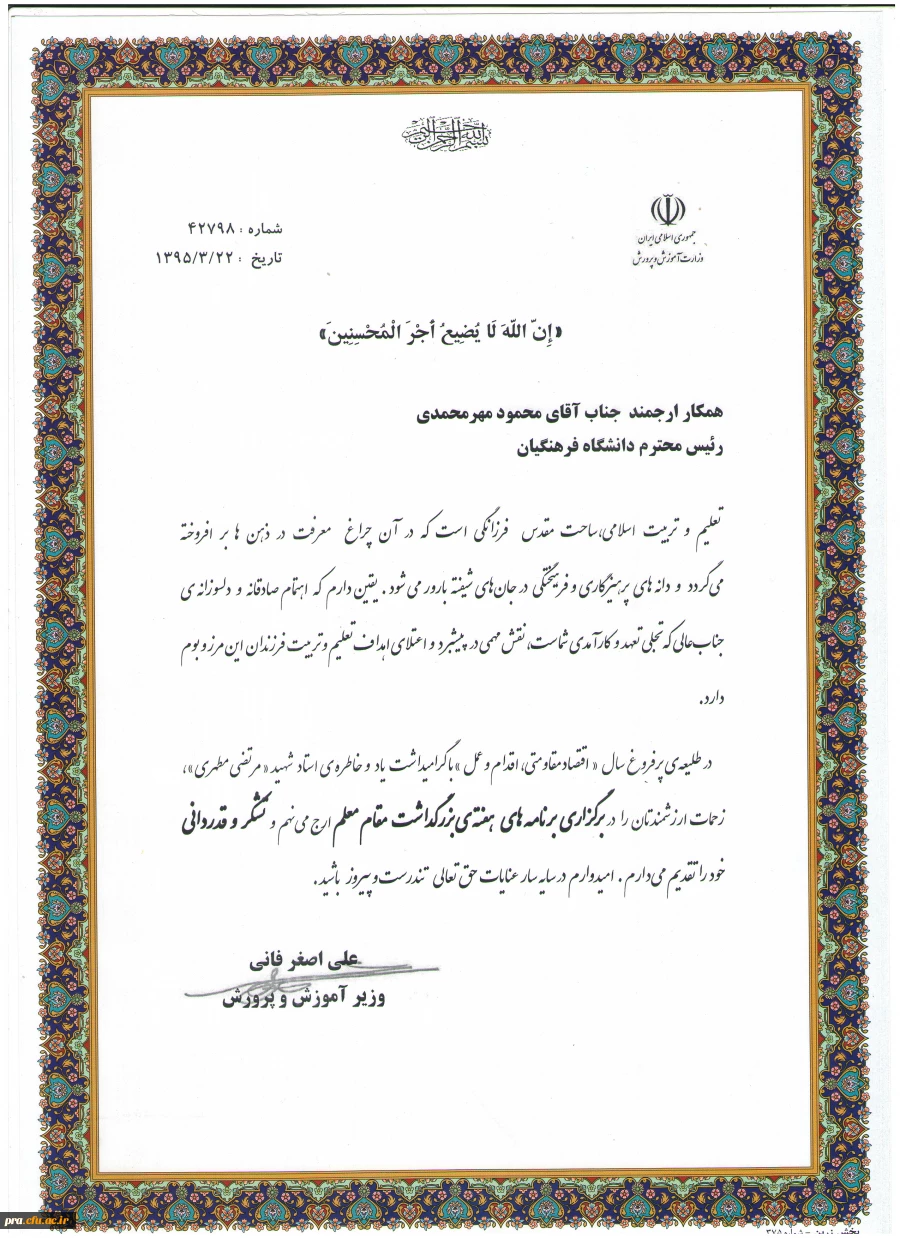 بسم الله الرحمن الرحیم
جمهوری اسلامی ایران
وزارت آموزش و پرورش
شماره : ۴۲۷۹۸
تاریخ : ۱۳۹۵/۳/۲۲
«إِنّ اللّهَ لَا يُضِيعُ أَجْرَ الْمُحْسِنِينَ»
همکار ارجمند جناب آقای محمود مهرمحمدی
رئیس محترم دانشگاه فرهنگیان
تعلیم و تربیت اسلامی،ساحت مقدس فرزانگی است که در آن چراغ معرفت در ذهن ها بر افروخته
می گردد و دانه های پرهیزکاری و فرهیختگی در جان‌های شیفته بارور می شود. یقین دارم که اهتمام صادقانه و دلسوزانه ی
جناب عالی که تجلی تعهد و کارآمدی شماست، نقش مهمی در پیشبرد و اعتلای اهداف تعلیم و تربیت فرزندان این مرز و بوم
دارد.
در طلیعه ی پر فروغ سال «اقتصاد مقاومتی، اقدام و عمل» با گرامیداشت یاد و خاطره ی استاد شهید «مرتضی مطهری»،
زحمات ارزشمندتان را در برگزاری برنامه های هفته ی بزرگداشت مقام معلم ارج می نهم و تشکر و قدردانی
خود را تقدیم می دارم. امیدوارم در سایه سار عنایات حق تعالی تندرست و پیروز باشید.
علی اصغر فانی
وزیر آموزش و پرورش
pra.cfu.ac.ir